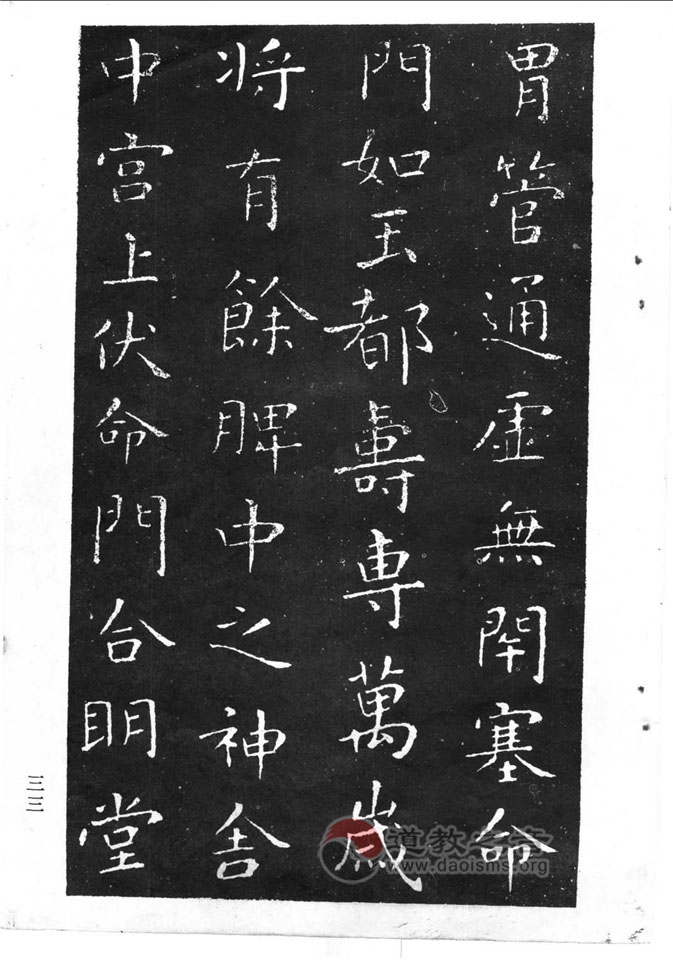 胃管通虛無閇塞命
門如玉都壽専萬歲
将有餘脾中之神舎
中宫上伏命門合明堂
三三
道教之音
www.daoisms.org